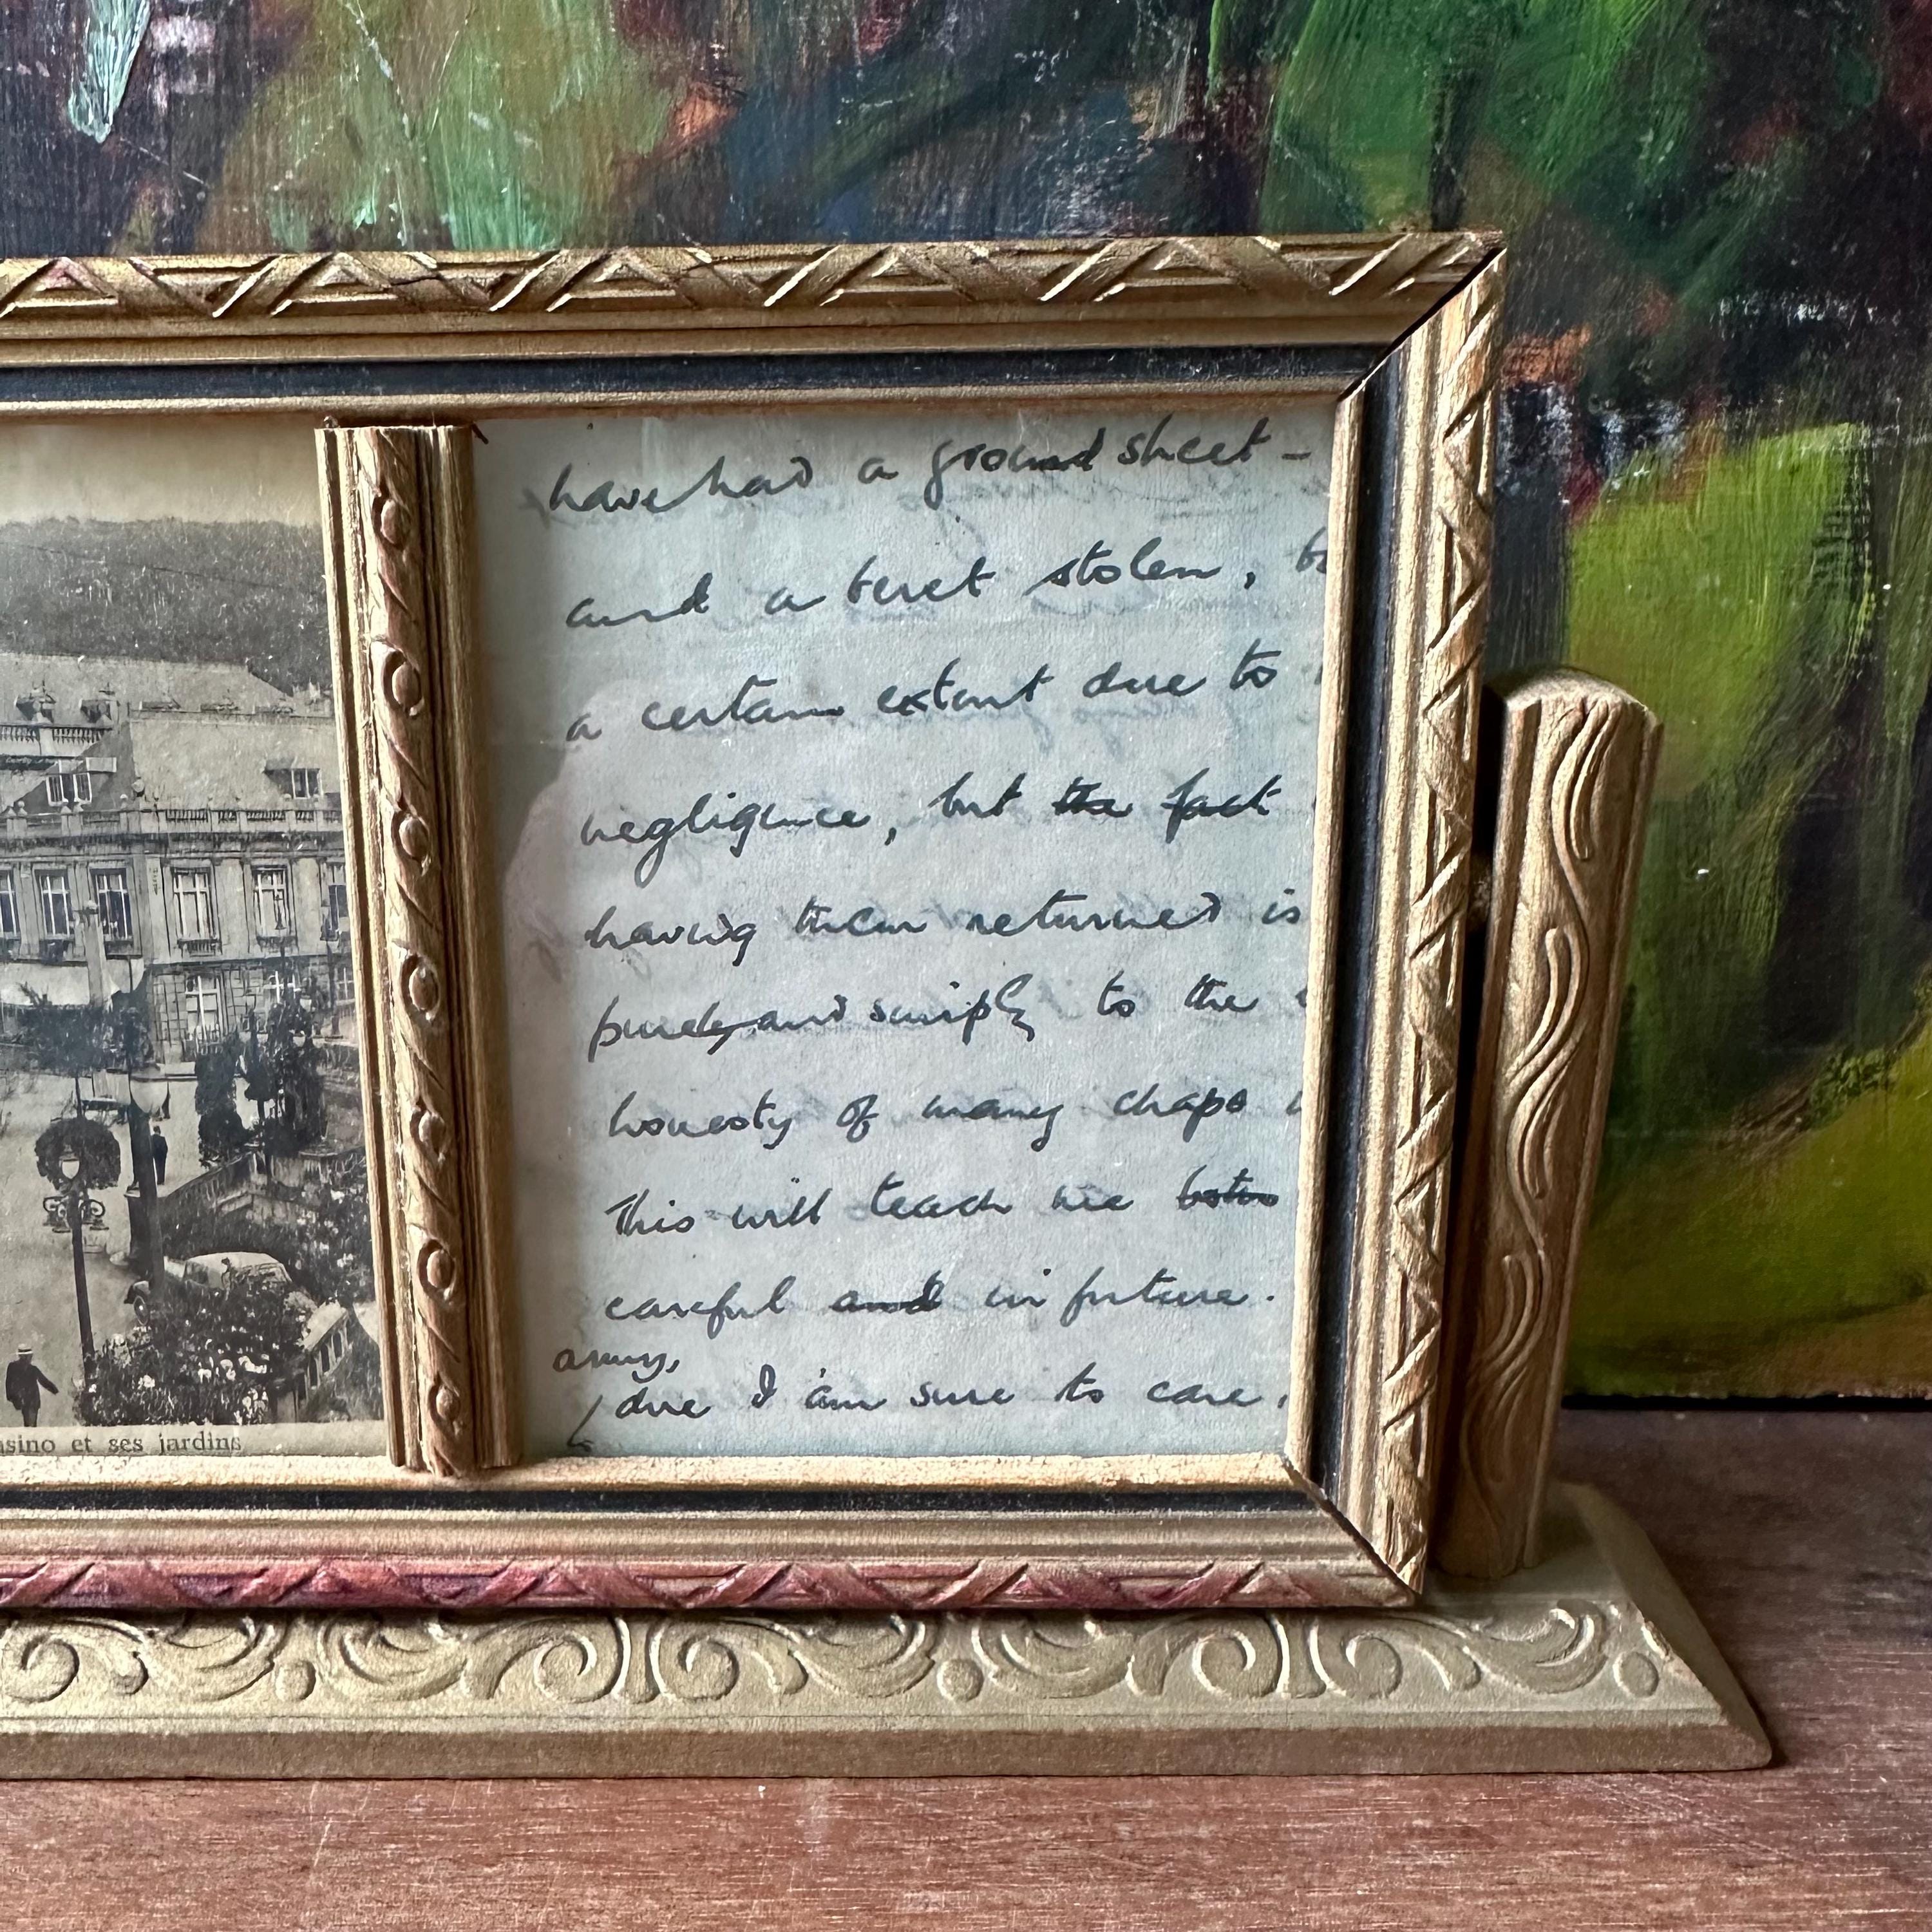 have had a ground sheet -
and a beret stolen,
a certain extent due to
negligence, but the fact
having them returned is
purely and simply to the
honesty of many chaps
This will teach me
careful and in future.
army,
due I am sure to care
sino et ses jardins